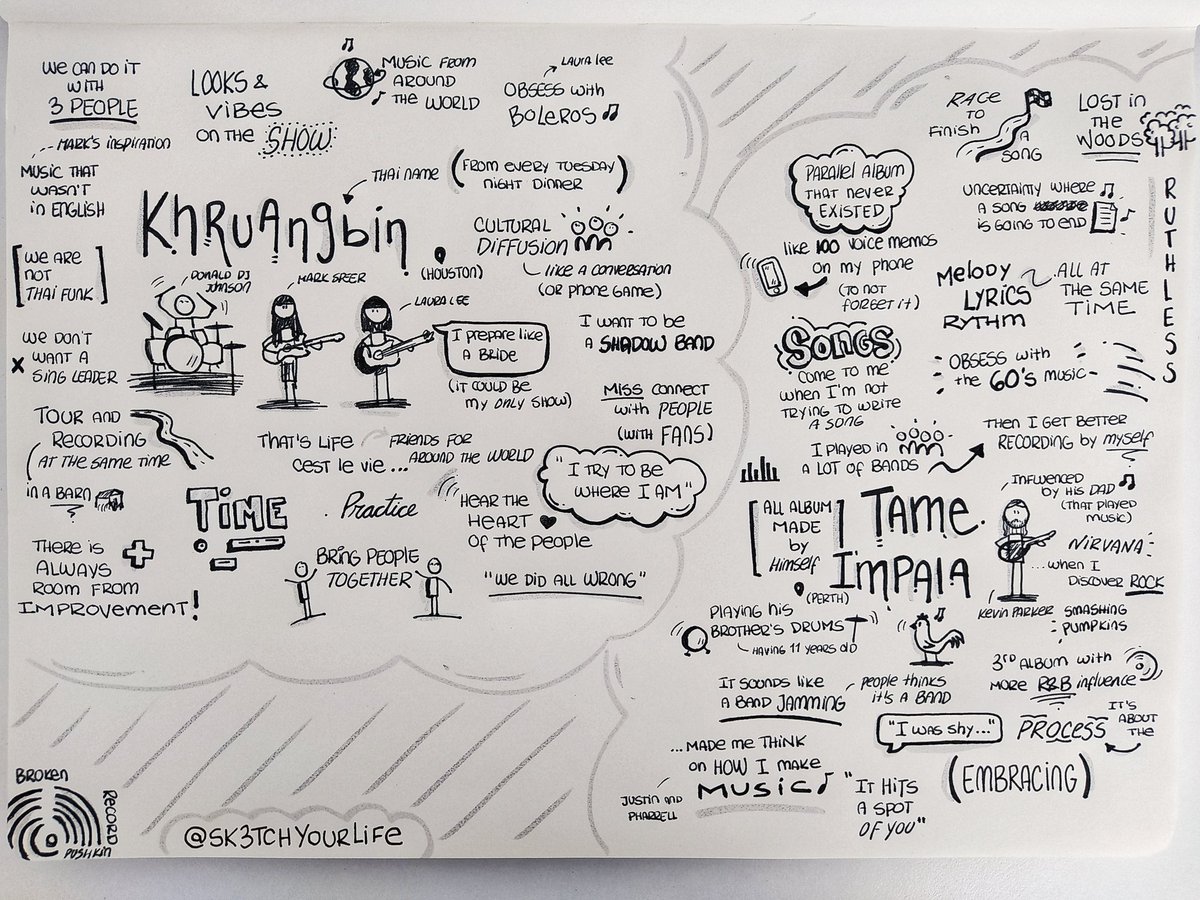 We can do it
with
3 PEOPLE
Looks &
vibes
on the SHOW
Music from
around
the world
Laura Lee
Obsess with
Boleros
Mark's inspiration
Music that
wasn't
in English
Thai name
(From every Tuesday
night dinner)
Khruangbin
(Houston)
Cultural
Diffusion
like a conversation
(or phone game)
[We are
not
Thai funk]
Donald DJ
Johnson
Mark Speer
Laura Lee
I prepare like
a bride
(it could be
my only show)
I want to be
a SHADOW BAND
We don't
x want a
sing leader
Miss connect
with people
(with fans)
Tour and
Recording
(at the same time
in a barn
That's life
cest le vie...
friends for
around the world
"I try to be
where I am"
TIME
Practice
Hear the
heart
of the people
There is
always
room from
improvement!
Bring people
together
"We did all wrong"
Broken
Record
Pushkin
@sk3tchyourlife
Race
to
finish
a
song
Lost in
the
woods
RUTHLESS
Parallel album
that never
existed
Uncertainty where
a song
is going to end
like 100 voice memos
on my phone
(to not
forget it)
Melody
Lyrics
Rythm
All at
the same
time
SONGS
come to me
when I'm not
trying to write
a song
Obsess with
the 60's music
I played in
a lot of bands
Then I get better
recording by myself
[All album
made
by
himself]
Tame
Impala
(Perth)
Influenced
by his dad
(that played
music)
Nirvana
...when I
discover ROCK
Kevin Parker
Smashing
Pumpkins
Playing his
brother's drums
having 11 years old
3rd album with
more R&B influence
It sounds like
a band jamming
people thinks
it's a band
"I was shy..."
It's
about
the
Process
...made me think
on how I make
MUSIC
Justin and
Pharrell
"It hits
a spot
of you"
(Embracing)